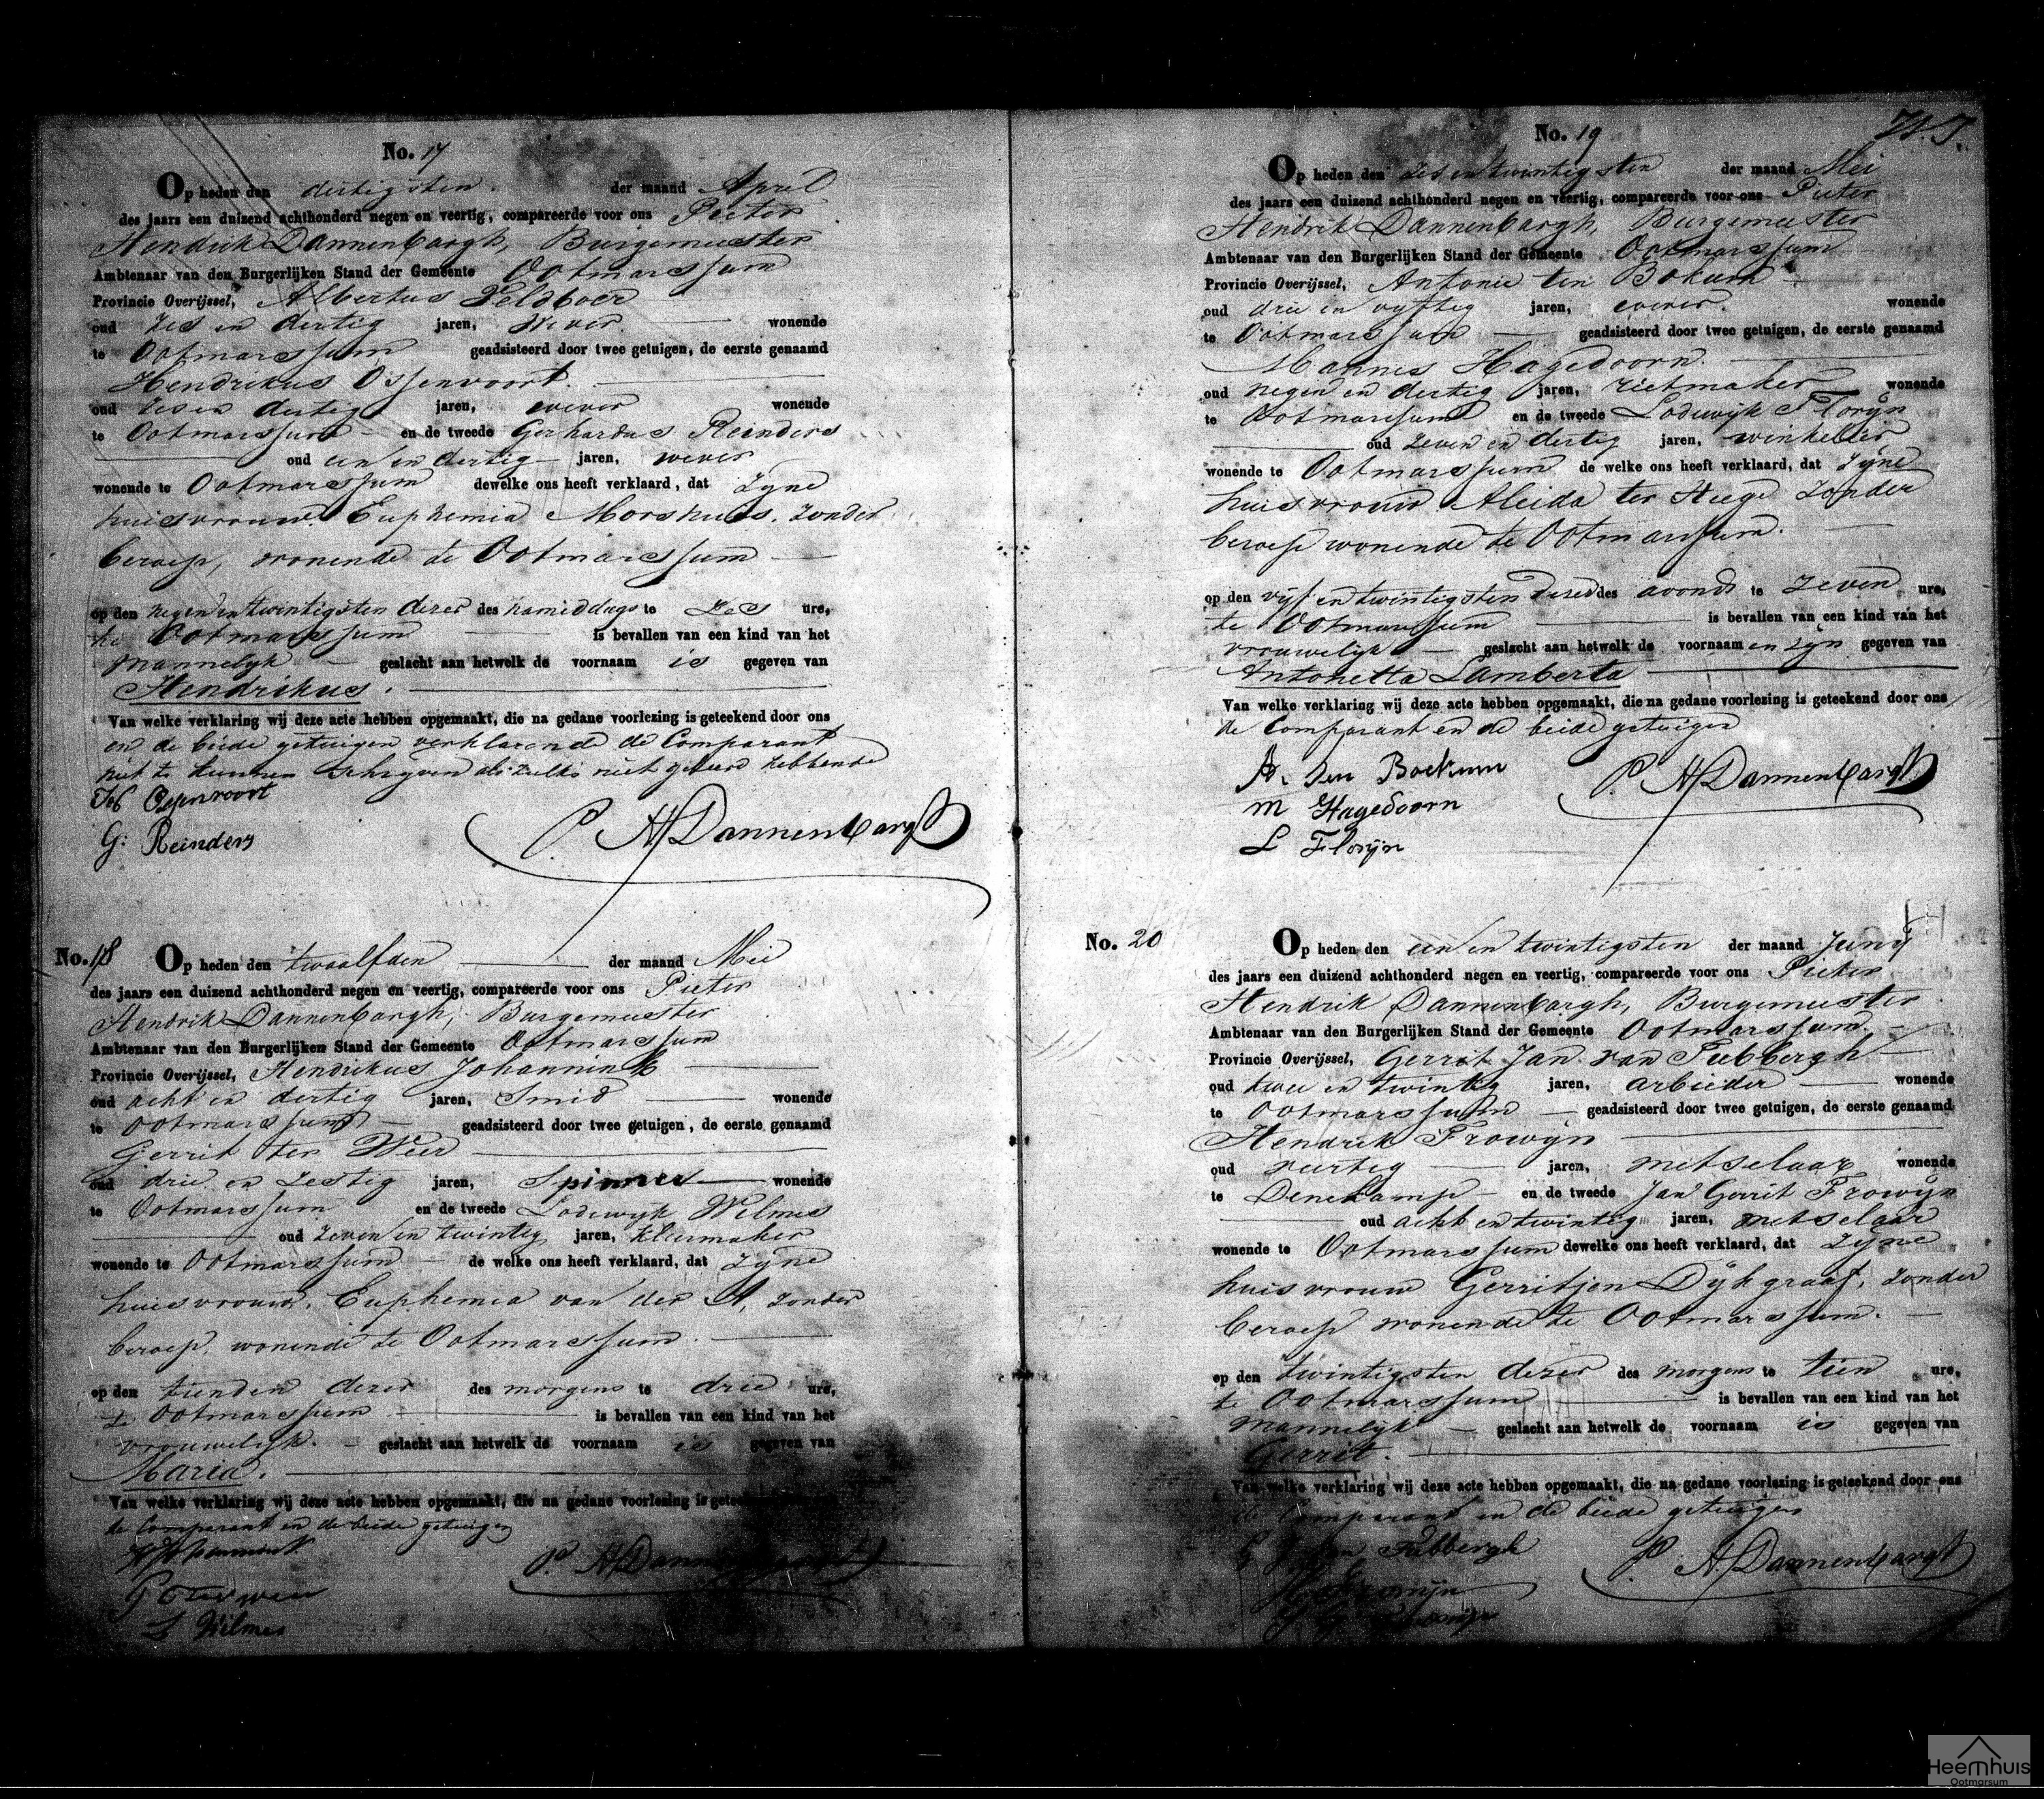 No. 17
Op heden den dertigsten der maand April
des jaars een duizend achthonderd negen en veertig, compareerde voor ons Pieter
Hendrik Dannenbargh, Burgemeester
Ambtenaar van den Burgerlijken Stand der Gemeente Ootmarssum
Provincie Overijssel, Albertus Veldboer
oud zes en dertig jaren, Wever wonende
te Ootmarssum geadsisteerd door twee getuigen, de eerste genaamd
Hendrikus Ossenvoort.
oud zes en dertig jaren, wever wonende
te Ootmarssum en de tweede Gerhardus Reinders
oud een en dertig jaren, wever
wonende te Ootmarssum dewelke ons heeft verklaard, dat zyne
huisvrouw Euphemia Morshuis, zonder
beroep, wonende te Ootmarssum
op den negen en twintigsten dezer des namiddags te zes ure,
te Ootmarssum is bevallen van een kind van het
mannelyk geslacht aan hetwelk de voornaam is gegeven van
Hendrikus.
Van welke verklaring wij deze acte hebben opgemaakt, die na gedane voorlezing is geteekend door ons
en de beide getuigen verklarende de Comparant
niet te kunnen schryven als zulks niet geleerd hebbende
Ossenvoort
G: Reinders
P. H. Dannenbargh
No. 18 Op heden den twaalfden der maand Mei
des jaars een duizend achthonderd negen en veertig, compareerde voor ons Pieter
Hendrik Dannenbargh, Burgemeester
Ambtenaar van den Burgerlijken Stand der Gemeente Ootmarssum
Provincie Overijssel, Hendrikus Johannink
oud acht en dertig jaren, Smid wonende
te Ootmarssum geadsisteerd door twee getuigen, de eerste genaamd
Gerrit ter Weer
oud drie en zestig jaren, Spinner wonende
te Ootmarssum en de tweede Lodewyk Wilmes
oud zeven en twintig jaren, kleermaker
wonende te Ootmarssum de welke ons heeft verklaard, dat zyne
huisvrouw, Euphemia van der A, zonder
beroep, wonende te Ootmarssum.
op den tienden dezer des morgens te drie ure,
te Ootmarssum is bevallen van een kind van het
vrouwelyk geslacht aan hetwelk de voornaam is gegeven van
Maria.
Van welke verklaring wij deze acte hebben opgemaakt, die na gedane voorlezing is
de Comparant en de beide getuigen
G ter weer
L Wilmes
P. H. Dannenbargh
No. 19
Op heden den zes en twintigsten der maand Mei
des jaars een duizend achthonderd negen en veertig, compareerde voor ons Pieter
Hendrik Dannenbargh, Burgemeester
Ambtenaar van den Burgerlijken Stand der Gemeente Ootmarssum
Provincie Overijssel, Antonie ten Bokum
oud drie en vyftig jaren, wever. wonende
te Ootmarssum geadsisteerd door twee getuigen, de eerste genaamd
Mannes Hagedoorn.
oud negen en dertig jaren, rietmaker wonende
te Ootmarssum en de tweede Lodewyk Floryn
oud zeven en dertig jaren, winkelier
wonende te Ootmarssum de welke ons heeft verklaard, dat zyne
huisvrouw Aleida ter Hege zonder
beroep wonende te Ootmarssum.
op den vijf en twintigsten dezer des avonds te zeven ure,
te Ootmarssum is bevallen van een kind van het
vrouwelyk geslacht aan hetwelk de voornaam en zyn gegeven van
Antonetta Lamberta
Van welke verklaring wij deze acte hebben opgemaakt, die na gedane voorlezing is geteekend door ons
de Comparant en de beide getuigen
A. ten Boekum
M Hagedoorn
L Floryn
P. H. Dannenbargh
No. 20 Op heden den een en twintigsten der maand Juny
des jaars een duizend achthonderd negen en veertig, compareerde voor ons Pieter
Hendrik Dannenbargh, Burgemeester
Ambtenaar van den Burgerlijken Stand der Gemeente Ootmarssum
Provincie Overijssel, Gerrit Jan van Tubbergh
oud twee en twintig jaren, arbeider wonende
te Ootmarssum geadsisteerd door twee getuigen, de eerste genaamd
Hendrik Frowyn
oud veertig jaren, metselaar wonende
te Denekamp en de tweede Jan Gerrit Frowyn
oud acht en twintig jaren, metselaar
wonende te Ootmarssum dewelke ons heeft verklaard, dat zyne
huisvrouw Gerritjen Dykgraaf, zonder
beroep wonende te Ootmarssum.
op den twintigsten dezer des morgens te tien ure,
te Ootmarssum is bevallen van een kind van het
mannelyk geslacht aan hetwelk de voornaam is gegeven van
Gerrit.
Van welke verklaring wij deze acte hebben opgemaakt, die na gedane voorlezing is geteekend door ons
de Comparant en de beide getuigen
G J van Tubbergh
H Frowyn
J G Frowyn
P. H. Dannenbargh
Heemhuis
Ootmarsum